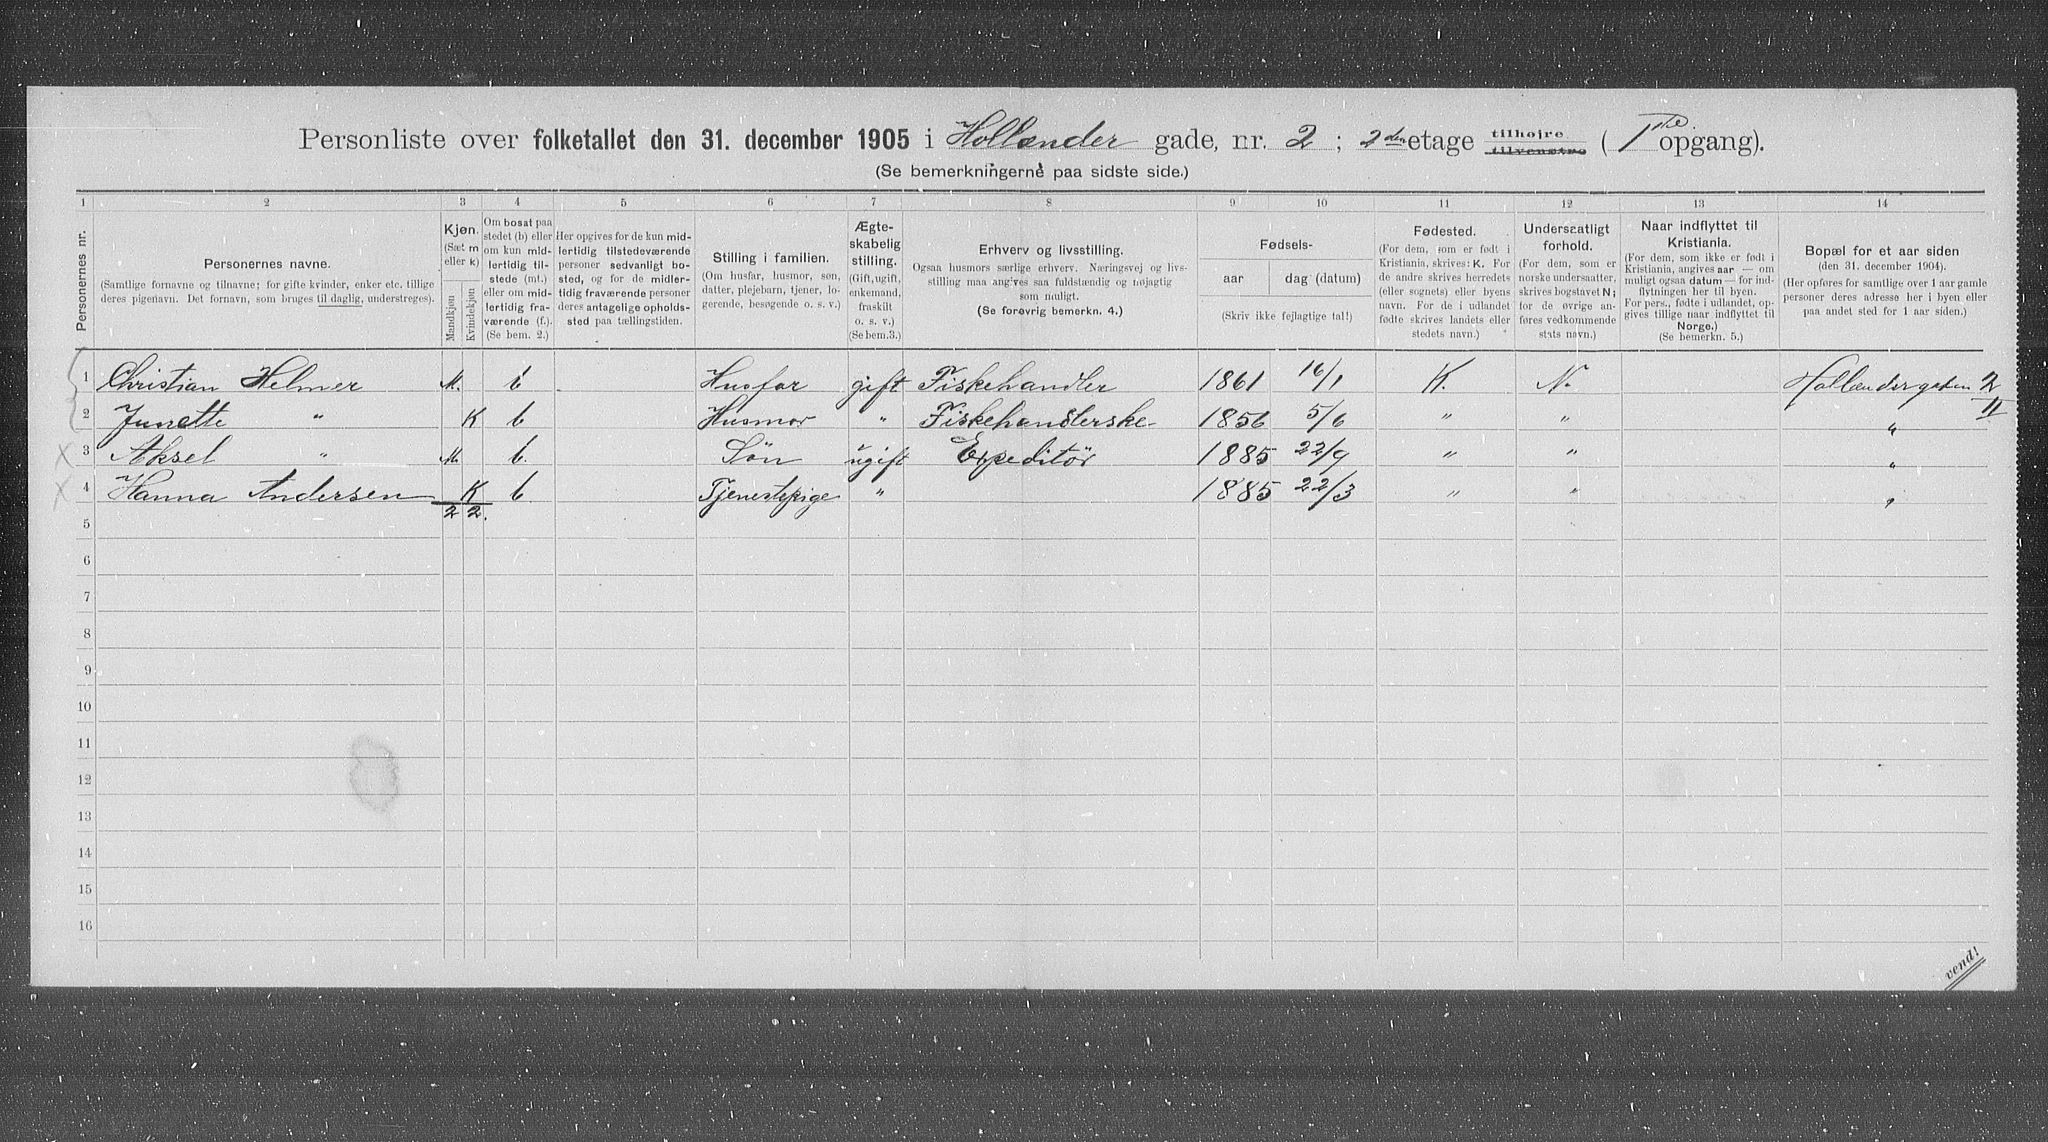 Personliste over folketallet den 31. december 1905 i Hollænder gade, nr. 2 ; 2den etage tilhøjre tilvenstre ( 1ste opgang).
(Se bemerkningerne paa sidste side.)
1 2 3 4 5 6 7 8 9 10 11 12 13 14
Personernes nr.
Personernes navne.
(Samtlige fornavne og tilnavne; for gifte kvinder, enker etc. tillige
deres pigenavn. Det fornavn, som bruges til daglig, understreges).
Kjøn.
(Sæt m
eller k)
Mandkjøn
Kvindekjøn
Om bosat paa
stedet (b) eller
om kun midlertidig til-
stede (mt.)
eller om mid-
lertidig fra-
værende (f.).
(Se bem. 2.)
Her opgives for de kun mid-
lertidig tilstedeværende
personer sedvanligt bo-
sted, og for de midler-
tidig fraværende personer
deres antagelige opholds-
sted paa tællingstiden.
Stilling i familien.
(Om husfar, husmor, søn,
datter, plejebarn, tjener, lo-
gerende, besøgende o. s. v.)
Ægte-
skabelig
stilling.
(Gift, ugift,
enkemand,
fraskilt
o. s. v.)
(Se bem.3.)
Erhverv og livsstilling.
Ogsaa husmors særlige erhverv. Næringsvej og livs-
stilling maa angives saa fuldstændig og nøjagtig
som muligt.
(Se forøvrig bemerkn. 4.)
Fødsels-
aar dag (datum)
(Skriv ikke fejlagtige tal!)
Fødested.
(For dem, som er født i
Kristiania, skrives: K. For
de andre skrives herredets
(eller sognets) eller byens
navn. For de i udlandet
fødte skrives landets eller
stedets navn.)
Undersaatligt
forhold.
(For dem, som er
norske undersaatter,
skrives bogstavet N;
for de øvrige an-
føres vedkommende
stats navn.)
Naar indflyttet til
Kristiania.
(For dem, som ikke er født i
Kristiania, angives aar — om
muligt ogsaa datum — for ind-
flytningen her til byen.
For pers., fødte i udlandet, op-
gives tillige naar indflyttet til
Norge.)
(Se bemerkn. 5.)
Bopæl for et aar siden
(den 31. december 1904).
(Her opføres for samtlige over 1 aar gamle
personer deres adresse her i byen eller
paa andet sted for 1 aar siden.)
1 Christian Helmer M. b Husfar gift Fiskehandler 1861 16/1 K. N. Hollændergaden 2
II
2 Junette " K b Husmor " Fiskehandlerske 1856 5/6 " " "
3 Aksel " M. b. Søn ugift Expeditör 1885 22/9 " " "
4 Hanna Andersen K b Tjenestepige " 1885 22/3 " " "
2 2.
5
6
7
8
9
10
11
12
13
14
15
16
vend!